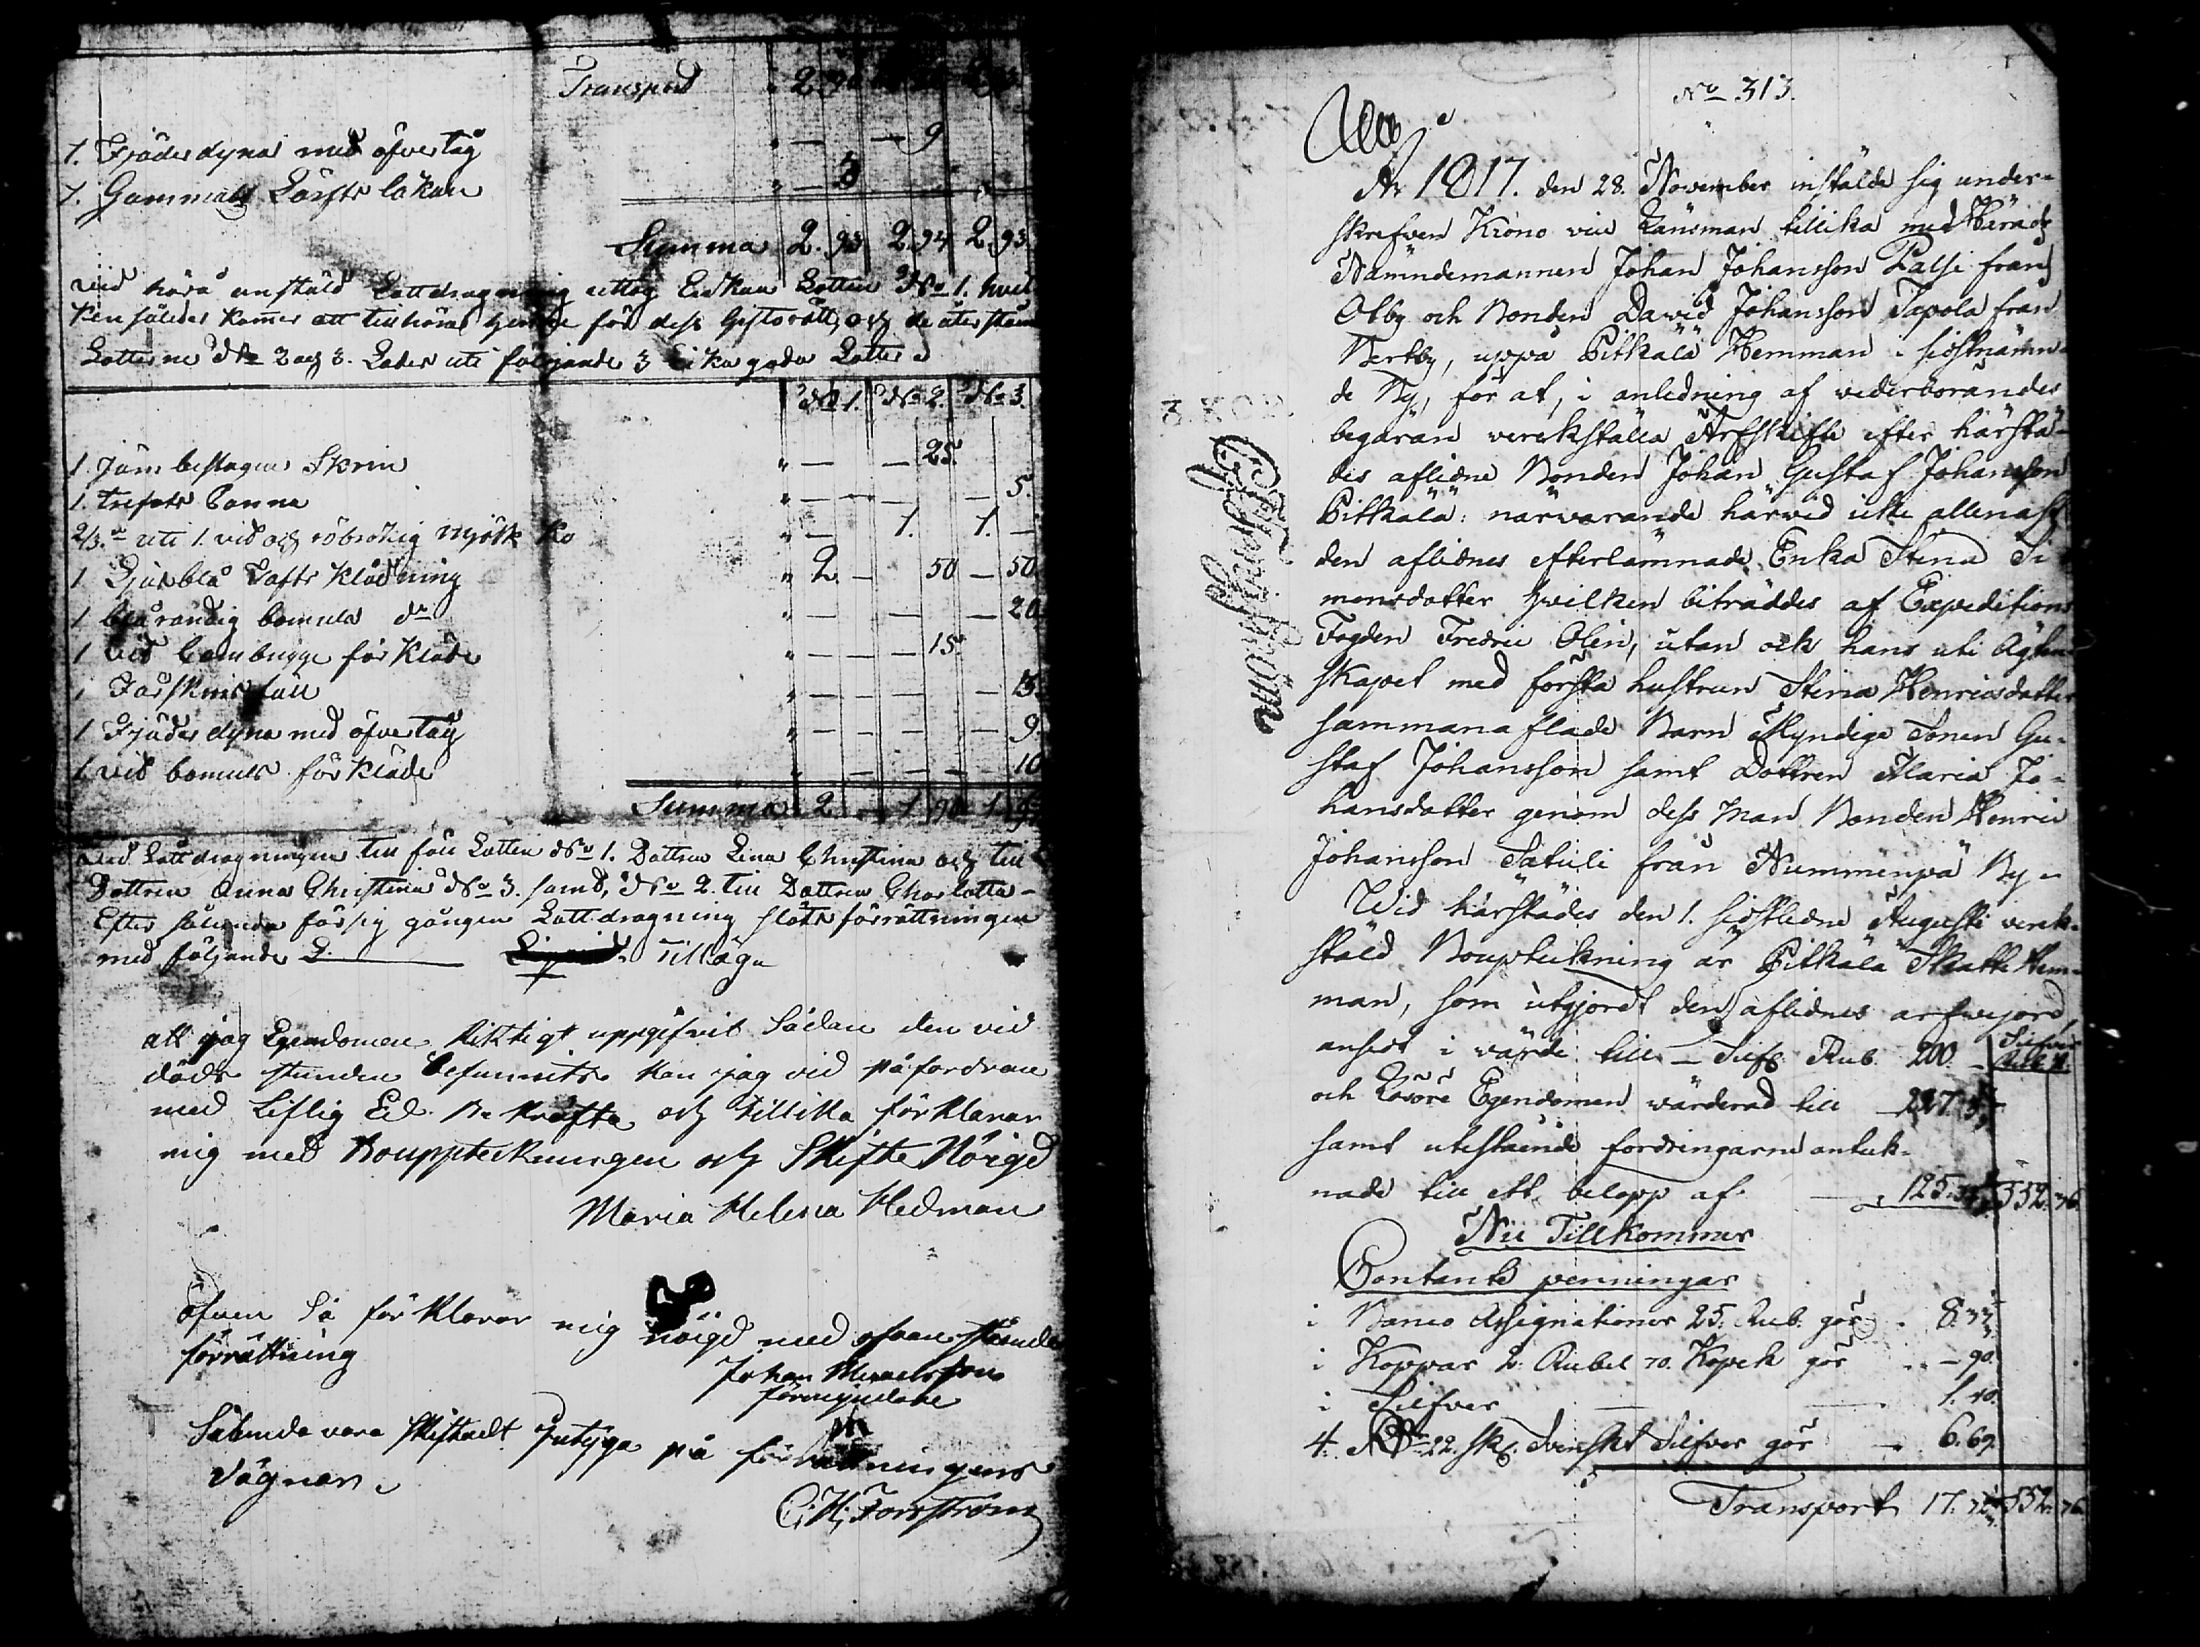 Transport 2. 90
1. Fjäder dyna med öfvertåg " — — 9
1. Gammalt Lärfts lakan " — 3
Summa 2. 93. 2. 94 2. 93.
vid härå anstäld Lottdragning uttog Enkan Lotten No 1. hvil
ken således kommer att tillhöra henne för dess Giftorätt, och de återstående
Lotterne No 2 och 3. Lades uti följande 3 lika goda Lotter
No 1. No 2. No 3.
1. Järn beslagen Skrin " — — 25.
1. trefots Panna " — — — — 5.
2/3. uti 1. vid och rödbrokig Mjölk Ko " — 1. 1. —
1 Djúkblå Tafts Klädning " 2. — 50 — 50
1 blå randig bomuls do " — — — 20
1 vid förkläde " — — — 15.
1 Fårskinsfäll " — — — — 15.
1 Fjäder dyna med öfvertåg " — — — — 9.
1. vid bomuls förkläde " — — — — 10
Summa 2 — 1. 90 1.
Vid Lottdragningen tillföll Lotten No 1. Dottren Lina Christina och till
Dottren Anna Christina No 3. samt, No 2. till Dottren Charlotta –
Efter sålunda försiggången Lottdragning slöts förrättningen
med följande Tillägn
att jag Egendomen Riktigt uppgifvit Sådan den vid
döds stunden befunnits kan jag vid påfordran
med Liflig Ed Bekräfta och tillika förklarar
mig med Bouppteckningen och Skifte Nöigd
Maria Helena Hedman
äfven så förklarar mig nöigd med ofvanstående
förrättning
Johan
förmyndare
Sålunda vara Skiftadt Intyga på förrättningens
Vägnar.
C. H. Forsström
No 313.
År 1817. den 28. November instälde sig under-
skrefven Krono vice Länsman tillika med Härads
Nämndemannen Johan Johansson Palsi från
Olby och Bonden David Johansson Tapola från
Nerkby, uppå Pitkälä Hemman i sidstnämn-
de By, för at, i anledning af vederbörandes
begäran verkställa Arfskifte efter härstä-
des aflidne Bonden Johan Gustaf Johansson
Pitkälä: närvarande härvid icke allenast
den aflidnes efterlämnade Enka Stina Si-
monsdotter hvilken biträddes af Expeditions
Fogden Fredric Olin, utan ock hans uti Ägten-
skapet med första hustrun Stina Henricsdotter
sammanaflade Barn Myndige Sonen Gu-
staf Johansson samt Dottren Maria Jo-
hansdotter genom dess Man Bonden Henric
Johansson Tatuli från Nummenpä By –
Wid härstädes den 1. sidstledne Augusti verk-
stäld Boupteckning är Pitkälä Skatte Hem-
man, som utgjordt den aflidnes arfvejord,
ansedt i värde till — Silf. Rub. 200. — Silfver Rub. K.
och Lösöre Egendomen värderad till — 227.
samt utestående fordringarne antek-
nade till ett belopp af — 125. 552. 76.
Nu Tillkommer
Contante penningar
i Banco Assignationer 25. Rub. gör . 8. 33
i Koppar 2. Rubel 70. Kopek gör . . — 90.
i Silfver — — 1. 80.
4. Rdr 22. sk. Svenskt Silfver gör — 6. 69.
Transport 17. 72 552. 76.